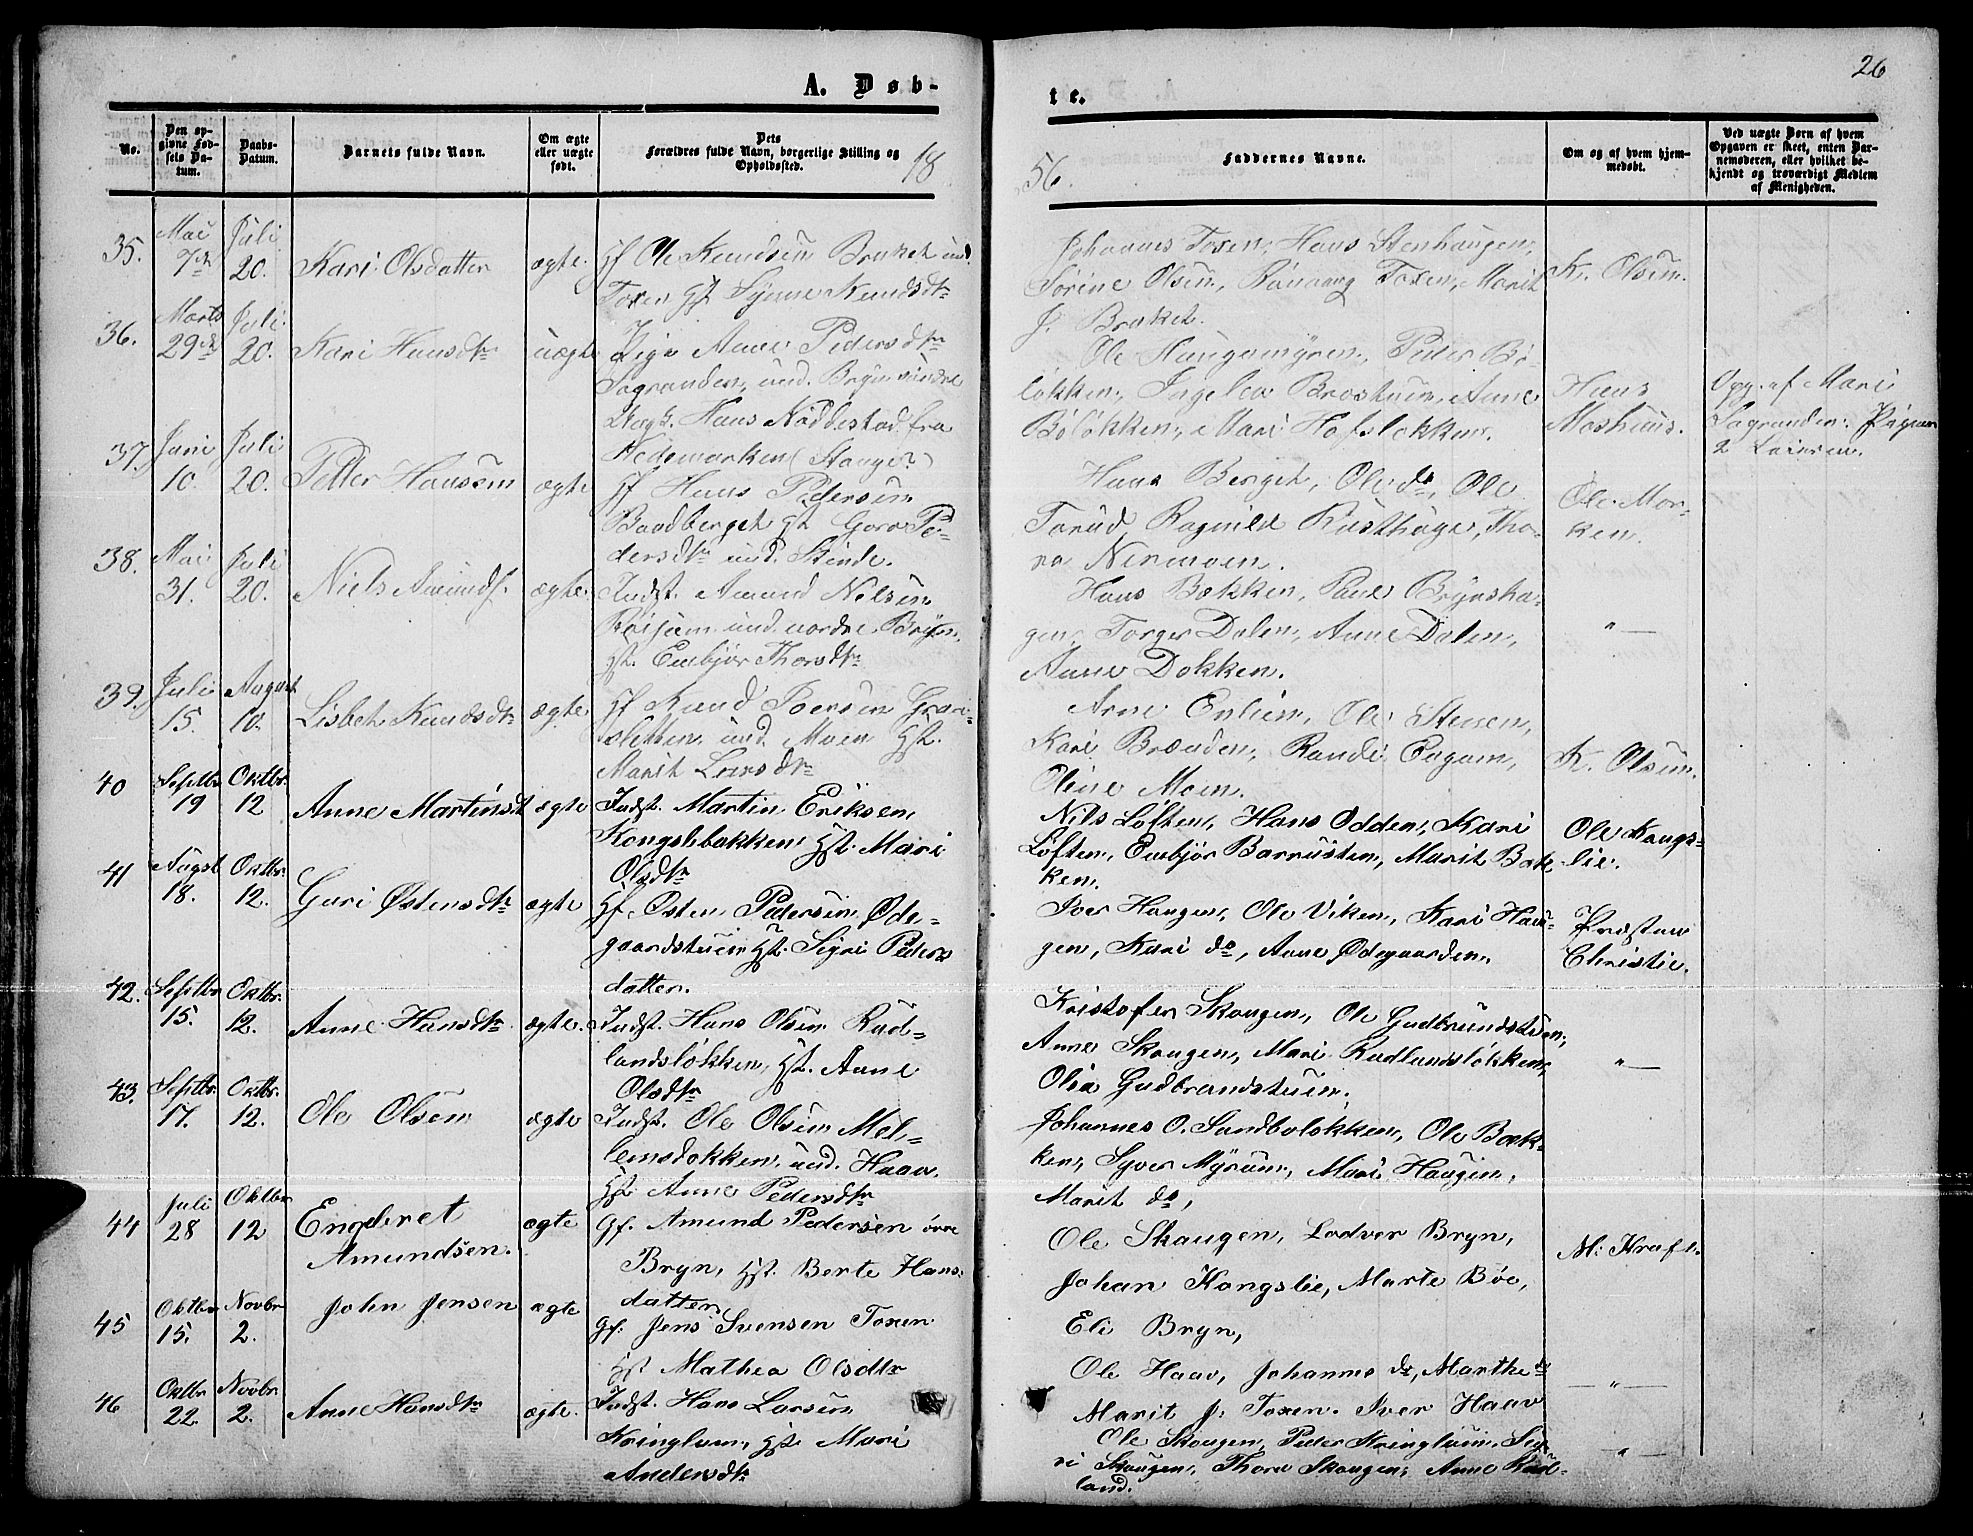 26
A. Døb-
te.
No.
Den op-
givne Fød-
sels Da-
tum.
Daabs-
Datum.
Barnets fulde Navn.
Om ægte
eller uægte
født.
Dets
Forældres fulde Navn, borgerlige Stilling og
Opholdssted.
18
56.
Faddernes Navne.
Om og af hvem hjem-
medøbt.
Ved uægte Børn af hvem
Opgaven er skeet, enten Bar-
nemoderen, eller hvilket be-
kjendt og troværdigt Medlem
af Menigheden.
35.
Mai
7de
Juli
20.
Kari Olsdatter
ægte.
Gf Ole Knudsen Braket und.
Toxen Hst Synne Knudsdtr
Johannes Toxen, Hans Stenhaugen,
Sørine Olsen, Rønnaug Toxen, Marit
J. Braket.
K. Olsen.
36.
Marts
29de
Juli
20.
Kari Hansdtr
uægte
Pige Anne Pedersdtr
Sagranden, und. Bryn nordre
Ungk. Hans Nøddestad fra
Hedemarken (Stange?)
Ole Haugsmyren, Peder Bø-
løkken, Ingelev Brostuen, Anne
Bøløkken, Mari Hofsløkken.
Hans
Moshuus.
Opg. af Mari
Sagranden.
37.
Juni
10.
Juli
20.
Petter Hansen
ægte
Gf Hans Pedersen
Baadberget Hst Goro Pe-
dersdtr und. Steinde.
Hans Berget, Ole do, Ole
Torud Ragnild Rusthage, Tho-
ra Nermoen.
Ole Mor-
ken.
38.
Mai
31.
Juli
20.
Niels Amunds.
ægte.
Indst. Amund Nilsen
und nordre Bryn.
Hst. Embjør Thorsdtr
Hans Bækken, Paul Brynsha-
gen, Torger Dalen, Anne Dalen,
Anne Dokken.
"—
39.
Juli
15.
August
10.
Lisbet Knudsdtr
ægte
Gf Knud Iversen Gran-
sletten und. Moen Hst.
Marit Larsdtr
Arne Enlien, Ole Stensen,
Kari Brænden, Randi Engom,
Oline Moen.
K. Olsen.
40
Septbr.
19
Oktbr.
12
Anne Martinsdt
ægte
Indst. Martin Eriksen
Kongslibakken Hst. Mari
Olsdtr
Nils Løften, Hans Odden, Kari
Løften, Embjør Barrusten, Marit Bak-
ken.
Ole Kongs-
lie.
41
Augst
18.
Oktbr.
12.
Guri Østensdtr
ægte
Gf. Østen Pedersen Øde-
gaardstuen Hst. Sigri Peders
datter.
Iver Haugen, Ole Viken, Kari Hau-
gen, Kari do, Anne Ødegaarden.
Præsten
Christie.
42.
Septbr
15.
Oktbr.
12.
Anne Hansdtr
ægte.
Indst. Hans Olsen Rud-
landsløkken, Hst. Anne
Olsdtr
Kristofer Skaugen, Ole Gudbrandstuen,
Anne Skaugen, Mari Rudlandsløkken,
Olia Gudbrandstuen.
"—
43.
Septbr.
17.
Oktbr.
12.
Ole Olsen
ægte
Indst. Ole Olsen Mel-
lemsdokken, und. Haav.
Hst Anne Pedersdtr
Johannes O. Sandboløkken, Ole Bæk-
ken, Syver Myrum, Mari Haugen,
Marit do,
44
Juli
28
Oktbr
12
Engebret
Amundsen.
ægte
Gf. Amund Pedersen övre
Bryn, Hst. Berte Hans-
datter,
Ole Skaugen, Lodver Bryn,
Johan Kongslie, Marte Böe,
Eli Bryn,
M: Kraft.
45
Oktbr
15.
Novbr
2.
John Jensen
ægte
Gf: Jens Svensen Toxen
Hst Mathea Olsdtr
Ole Haav, Johannes do, Marthe do
Marit J. Toxen. Iver Haav
—"—
46
Oktbr
22
Novbr
2.
Anne Hansdtr
ægte.
Indst. Hans Larsen
Kringlum, Hst. Mari
Andersdtr
Ole Skaugen, Peder Kringlum, Sig-
ri Skaugen, Thora Skaugen, Anne Rud-
land.
"—